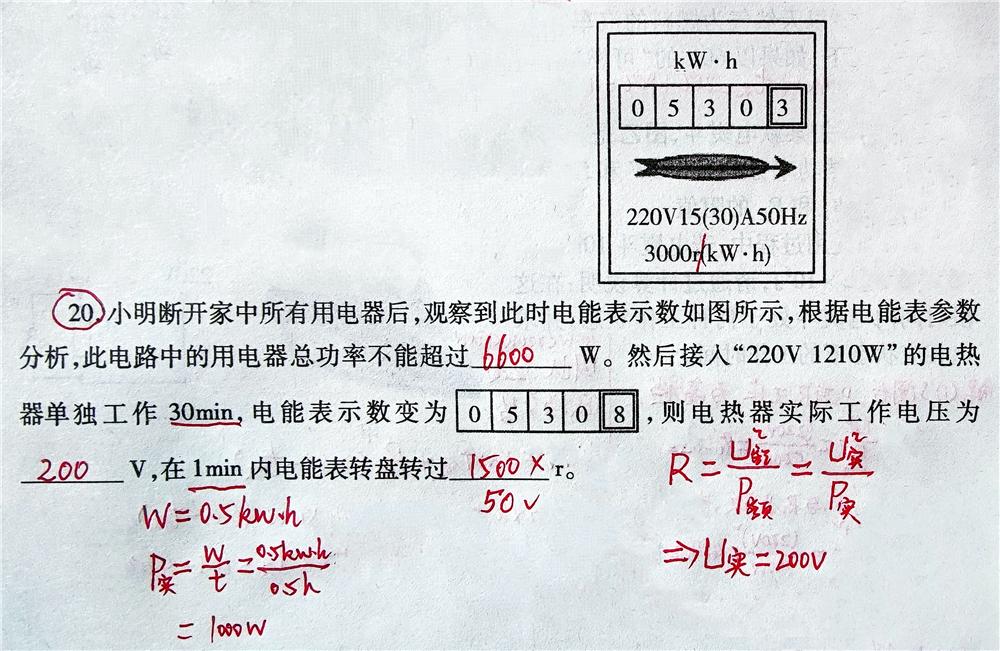 kW·h
0 5 3 0 3
220V15(30)A50Hz
3000r/(kW·h)
20.小明断开家中所有用电器后,观察到此时电能表示数如图所示,根据电能表参数
分析,此电路中的用电器总功率不能超过 6600 W。然后接入“220V 1210W”的电热
器单独工作 30min,电能表示数变为 0 5 3 0 8 ,则电热器实际工作电压为
200 V,在 1min 内电能表转盘转过 1500 × r。
50 √
W=0.5kw·h
P实=W/t=0.5kw·h/0.5h
=1000W
R=U额²/P额=U实²/P实
⇒U实=200V